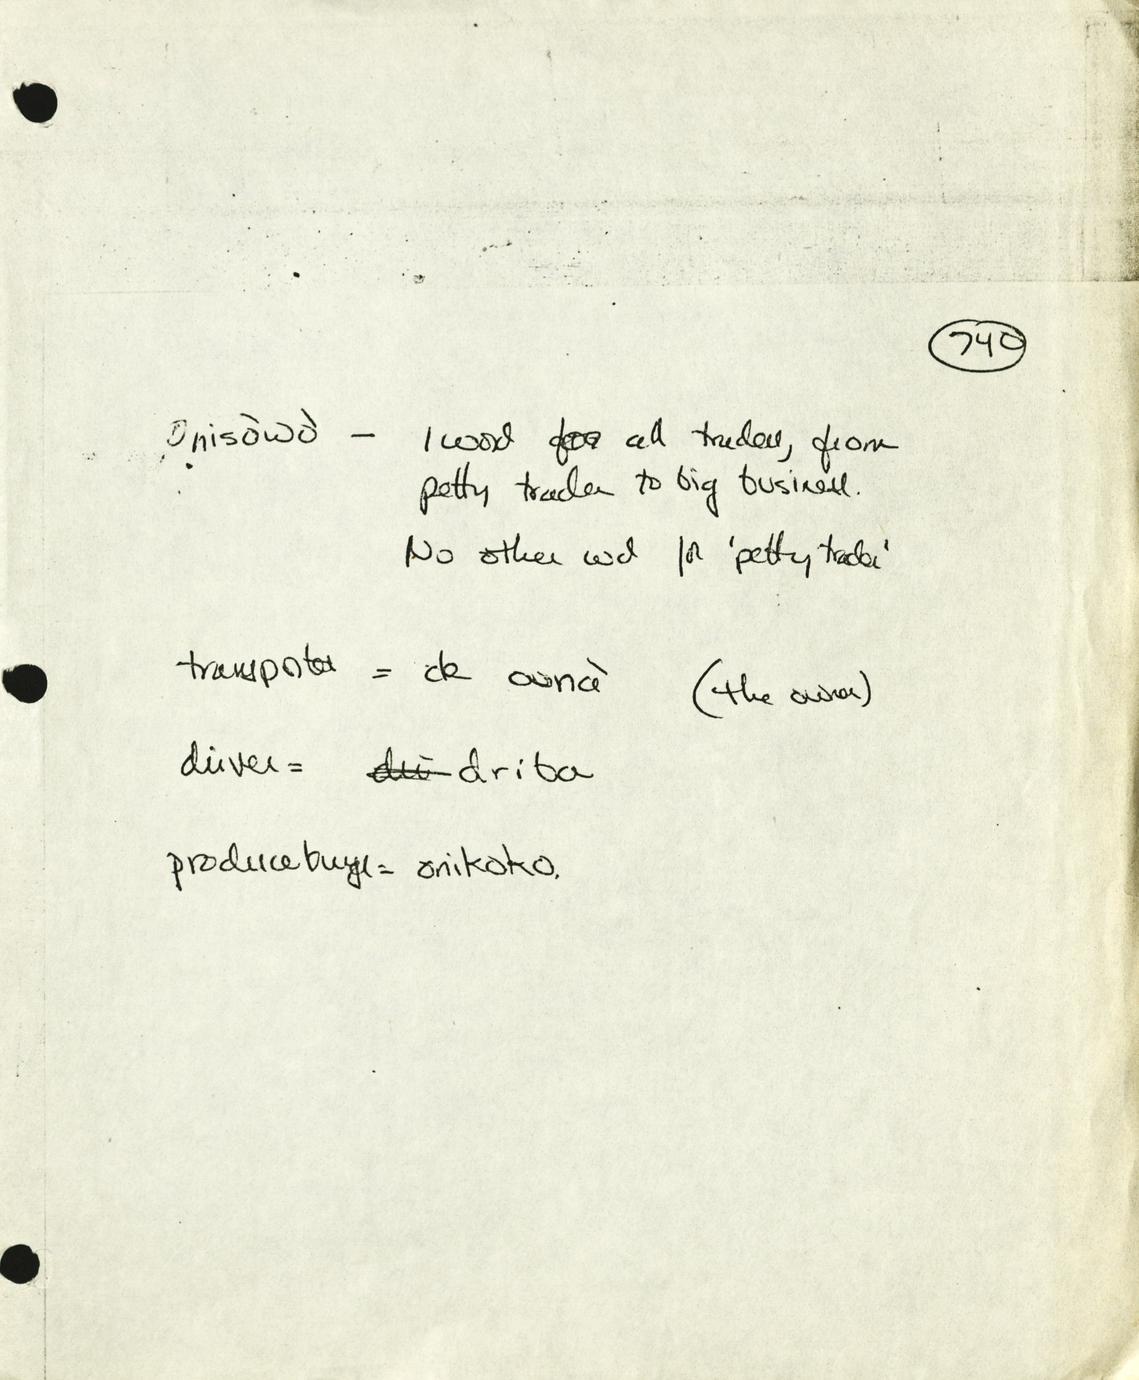 740
Onisòwò – 1 word for all traders, from
petty trader to big business.
No other wd for 'petty trader'
transporter = de ownà (the owner)
driver = dri driba
produce buyer = onikoko.